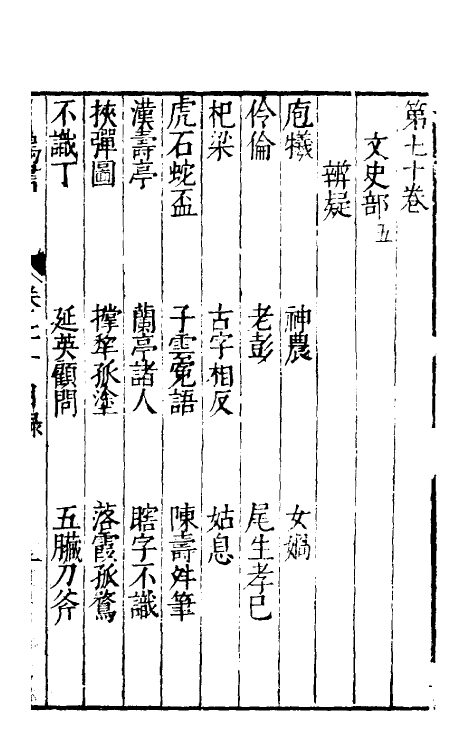 第七十卷
文史部五
辨疑
庖犧　神農　女媧
伶倫　老彭　尾生孝己
杞梁　古字相反　姑息
虎石蛇盃　子雲寃語　陳壽舛筆
漢壽亭　蘭亭諸人　瞎字不識
挾彈圖　撑犂孤塗　落霞孤鶩
不識丁　延英顧問　五臟刀斧
卷七十 目錄